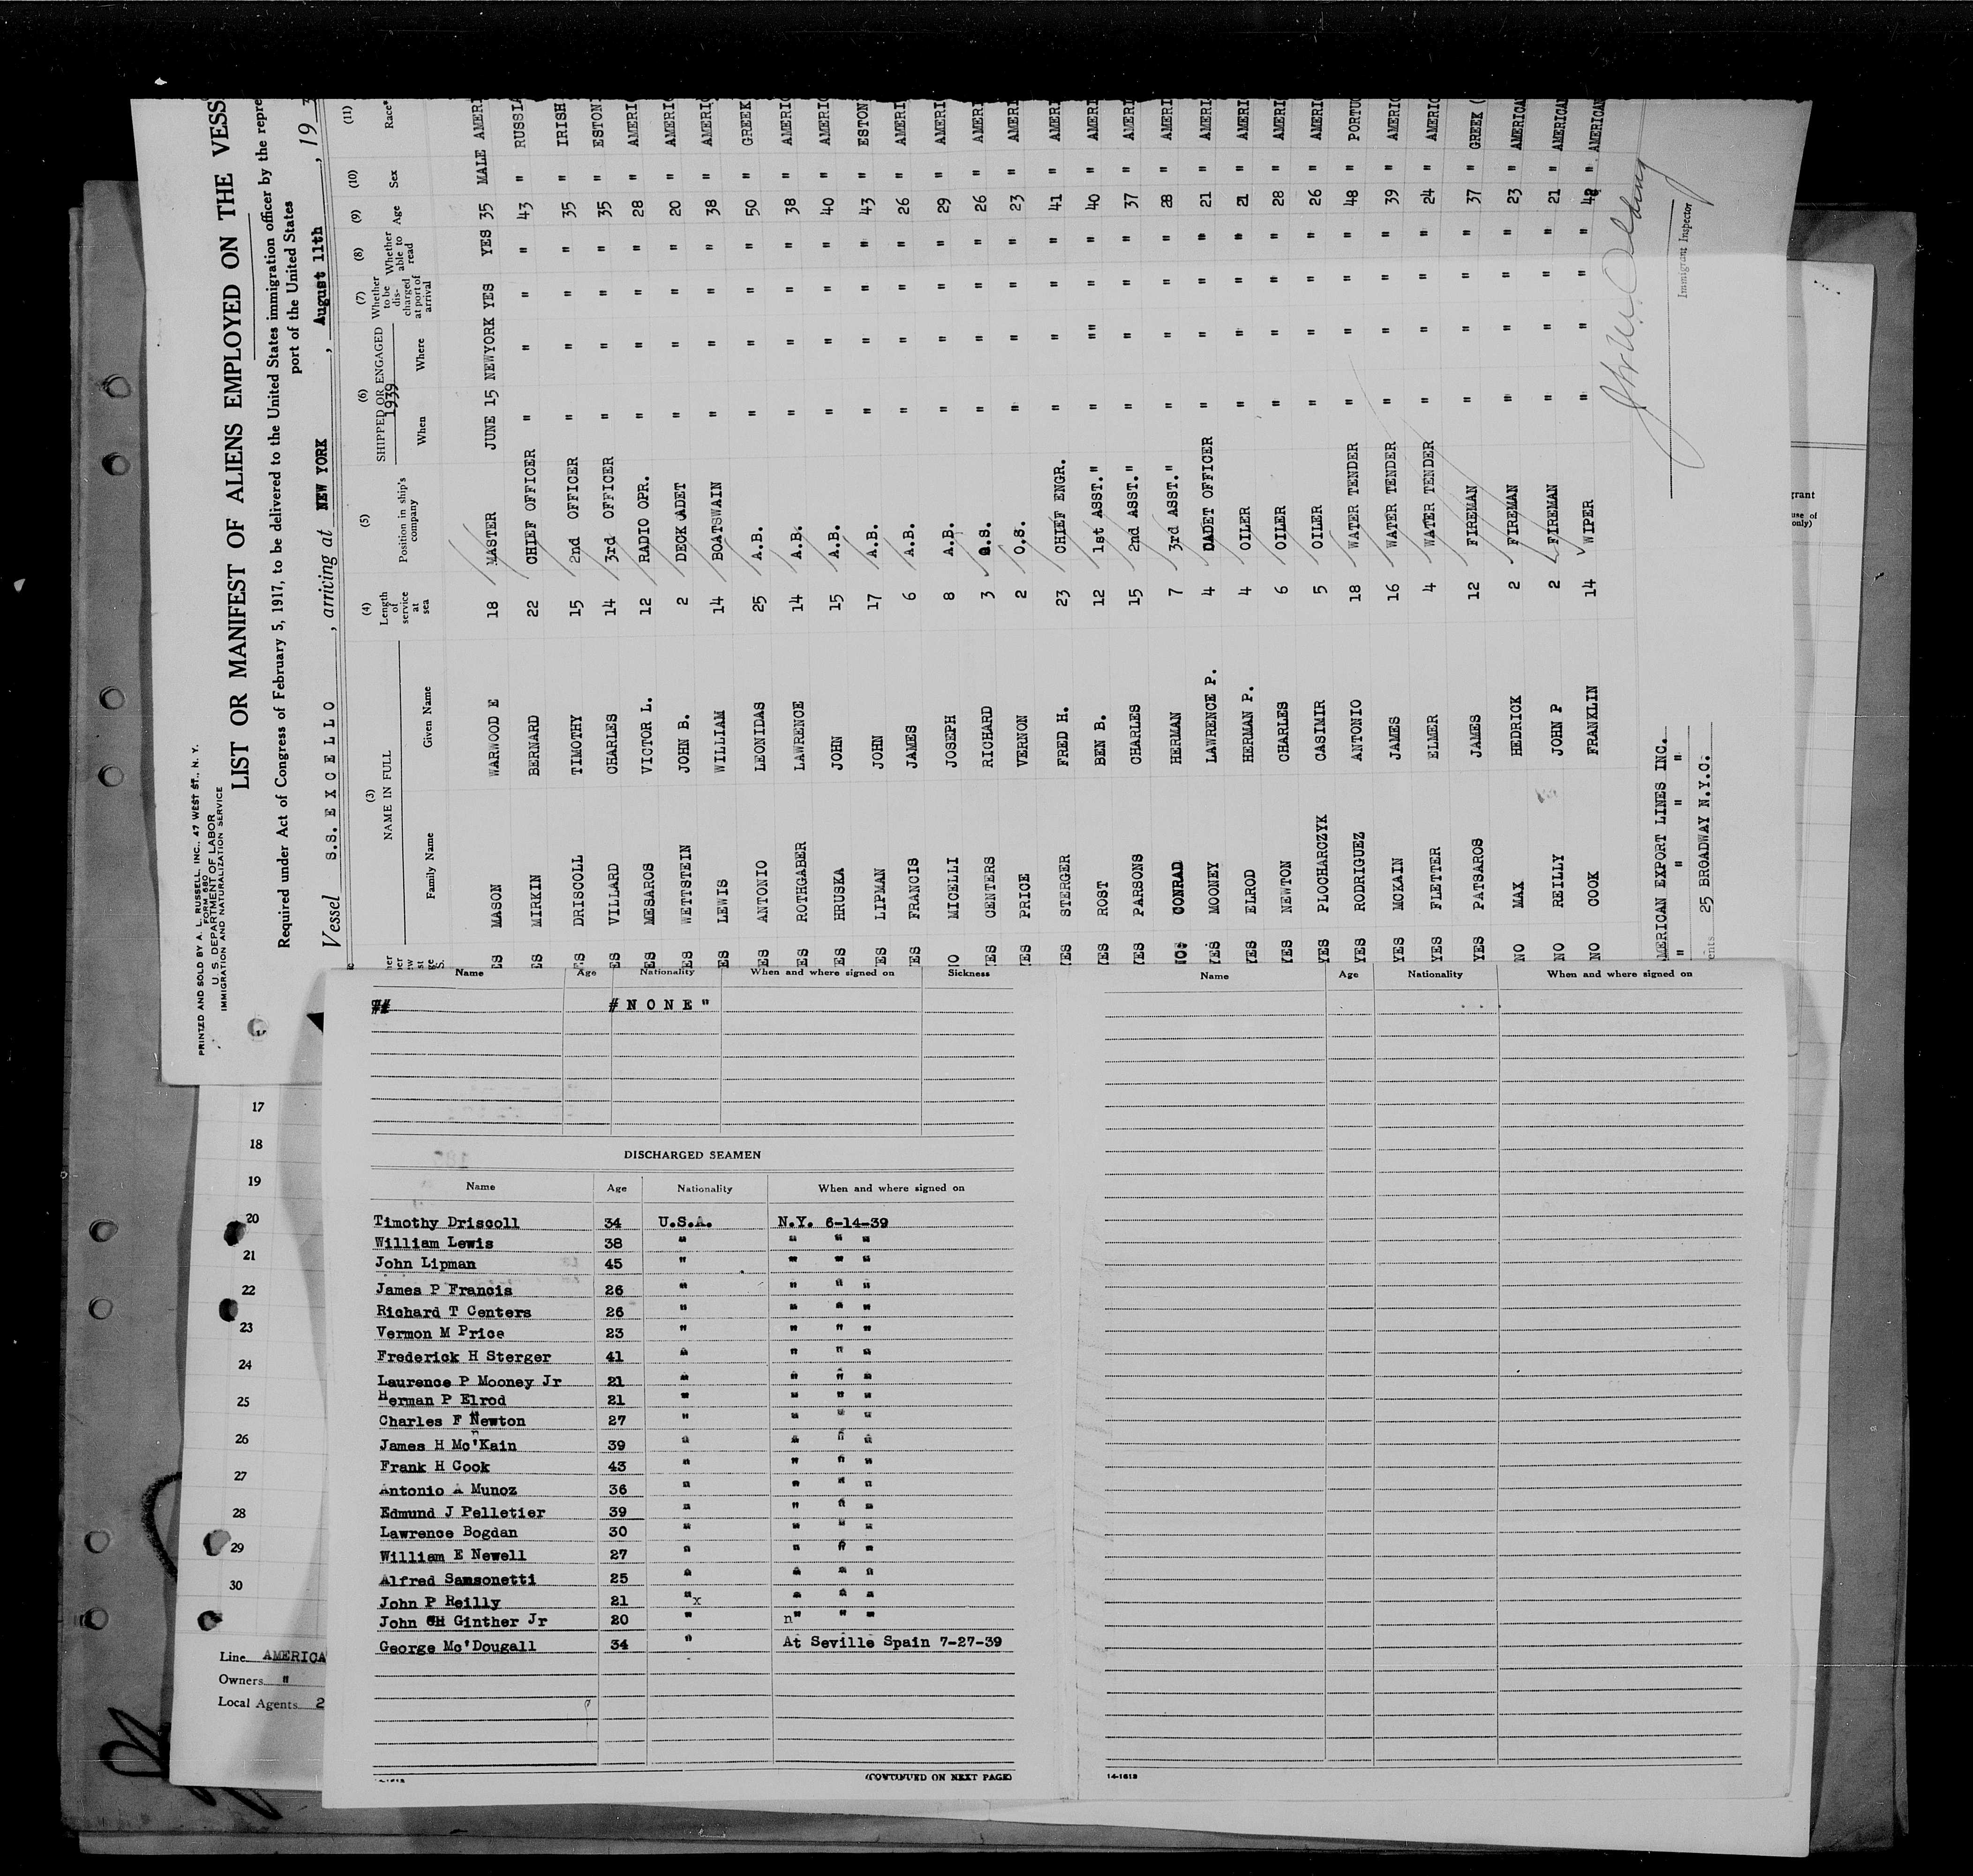 PRINTED AND SOLD BY A. L. RUSSELL, INC., 47 WEST ST., N. Y.
FORM 680
U. S. DEPARTMENT OF LABOR
IMMIGRATION AND NATURALIZATION SERVICE
LIST OR MANIFEST OF ALIENS EMPLOYED ON THE VESS
Required under Act of Congress of February 5, 1917, to be delivered to the United States immigration officer by the repre
port of the United States
Vessel S.S. EXCELLO, arriving at NEW YORK, August 11th, 19 3
(3) (4) (5) (6) (7) (8) (9) (10) (11)
NAME IN FULL Length of service at sea Position in ship's company SHIPPED OR ENGAGED 1939 Whether to be discharged at port of arrival Whether able to read Age Sex Race*
Family Name Given Name When Where
ES MASON WARWOOD E 18 MASTER JUNE 15 NEWYORK YES YES 35 MALE AMERI
ES MIRKIN BERNARD 22 CHIEF OFFICER " " " " 43 " RUSSIA
ES DRISCOLL TIMOTHY 15 2nd OFFICER " " " " 35 " IRISH
ES VILLARD CHARLES 14 3rd OFFICER " " " " 35 " ESTON
ES MESAROS VICTOR L. 12 RADIO OPR. " " " " 28 " AMERI
ES WETTSTEIN JOHN B. 2 DECK CADET " " " " 20 " AMERI
ES LEWIS WILLIAM 14 BOATSWAIN " " " " 38 " AMERI
ES ANTONIO LEONIDAS 25 A.B. " " " " 50 " GREEK
ES ROTHGABER LAWRENCE 14 A.B. " " " " 38 " AMERIC
ES HRUSKA JOHN 15 A.B. " " " " 40 " AMERIC
ES LIPMAN JOHN 17 A.B. " " " " 43 " ESTON
ES FRANCIS JAMES 6 A.B. " " " " 26 " AMERI
NO MICELLI JOSEPH 8 A.B. " " " " 29 " AMERI
YES CENTERS RICHARD 3 O.S. " " " " 26 " AMERI
YES PRICE VERNON 2 O.S. " " " " 23 " AMERI
YES STERGER FRED H. 23 CHIEF ENGR. " " " " 41 " AMERI
YES ROST BEN B. 12 1st ASST." " "" " " 40 " AMERI
YES PARSONS CHARLES 15 2nd ASST." " " " " 37 " AMERI
NO: CONRAD HERMAN 7 3rd ASST." " " " " 28 " AMERI
YES MOONEY LAWRENCE P. 4 CADET OFFICER " " " " 21 " AMERI
YES ELROD HERMAN P. 4 OILER " " " " 21 " AMERI
YES NEWTON CHARLES 6 OILER " " " " 28 " AMERI
YES PLOCHARCZYK CASIMIR 5 OILER " " " " 26 " AMERI
YES RODRIGUEZ ANTONIO 18 WATER TENDER " " " " 48 " PORTUG
YES MCKAIN JAMES 16 WATER TENDER " " " " 39 " AMERIC
YES FLETTER ELMER 4 WATER TENDER " " " " 24 " AMERIC
YES PATSAROS JAMES 12 FIREMAN " " " " 37 " GREEK (
NO MAX HEDRICK 2 FIREMAN " " " " 23 " AMERICAN
NO REILLY JOHN P 2 FIREMAN " " " " 21 " AMERICAN
NO COOK FRANKLIN 14 WIPER " " " " 42 " AMERICAN
MERICAN EXPORT LINES INC.
" " " "
ents 25 BROADWAY N.Y.C.
Immigrant Inspector
grant
use of
only)
Name Age Nationality When and where signed on Sickness
#NONE"
DISCHARGED SEAMEN
Name Age Nationality When and where signed on
Timothy Driscoll 34 U.S.A. N.Y. 6-14-39
William Lewis 38 " " " "
John Lipman 45 " " " "
James P Francis 26 " " " "
Richard T Centers 26 " " " "
Vermon M Price 23 " " " "
Frederick H Sterger 41 " " " "
Laurence P Mooney Jr 21 " " " "
Herman P Elrod 21 " " " "
Charles F Newton 27 " " " "
James H Mc'Kain 39 " " " "
Frank H Cook 43 " " " "
Antonio A Munoz 36 " " " "
Edmund J Pelletier 39 " " " "
Lawrence Bogdan 30 " " " "
William E Newell 27 " " " "
Alfred Samsonetti 25 " " " "
John P Reilly 21 "x " " "
John H Ginther Jr 20 " n" " "
George Mc'Dougall 34 " At Seville Spain 7-27-39
(CONTINUED ON NEXT PAGE)
Name Age Nationality When and where signed on
14-1612
17
18
19
20
21
22
23
24
25
26
27
28
29
30
Line AMERICA
Owners "
Local Agents 2